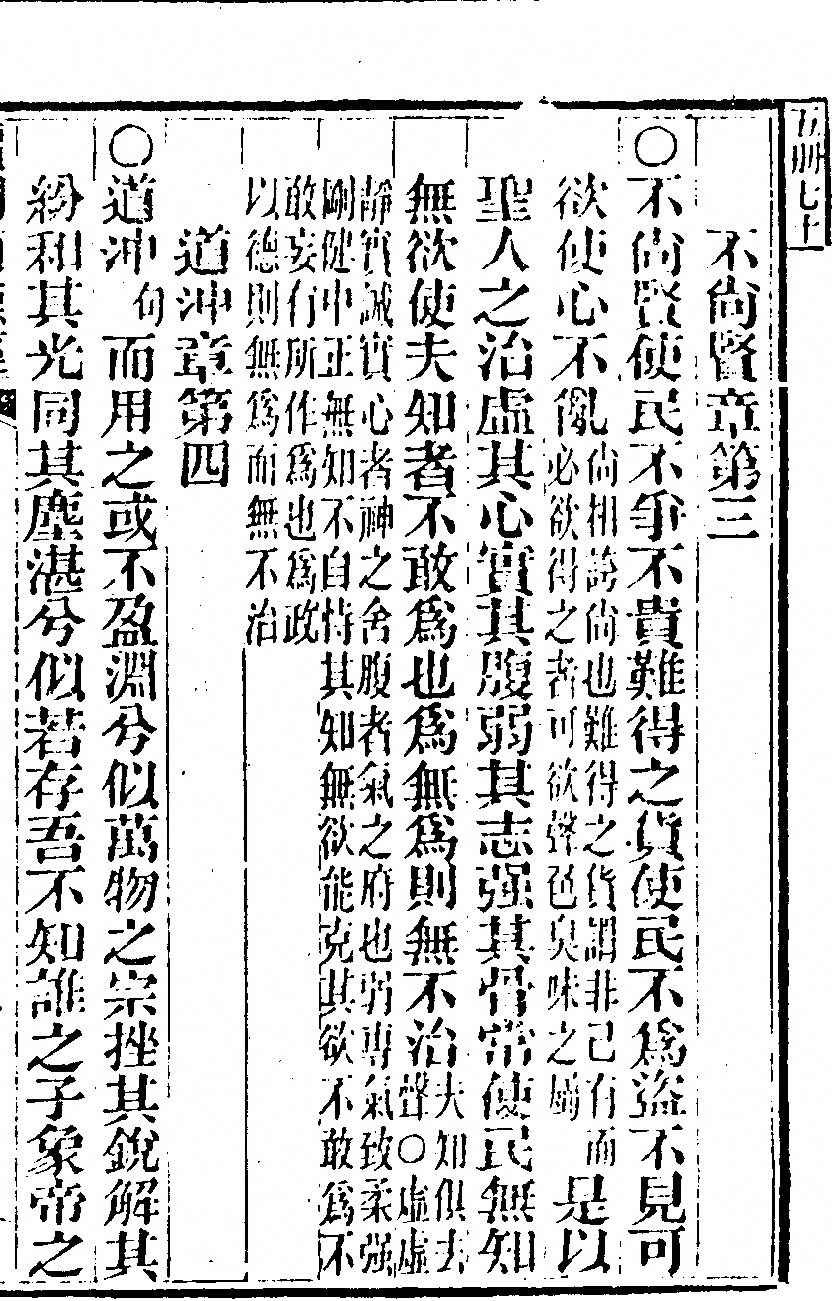 五冊七十
不尚賢章第三
○不尚賢使民不爭不貴難得之貨使民不爲盜不見可
欲使心不亂尚相誇尚也難得之貨謂非己有而
必欲得之者可欲聲色臭味之屬是以
聖人之治虛其心實其腹弱其志强其骨常使民無知
無欲使夫知者不敢爲也爲無爲則無不治夫知俱去
聲○虛虛
靜實誠實心者神之舍腹者氣之府也弱專氣致柔强
剛健中正無知不自恃其知無欲能克其欲不敢爲不
敢妄有所作爲也爲政
以德則無爲而無不治
道沖章第四
○道沖句而用之或不盈淵兮似萬物之宗挫其銳解其
紛和其光同其塵湛兮似若存吾不知誰之子象帝之